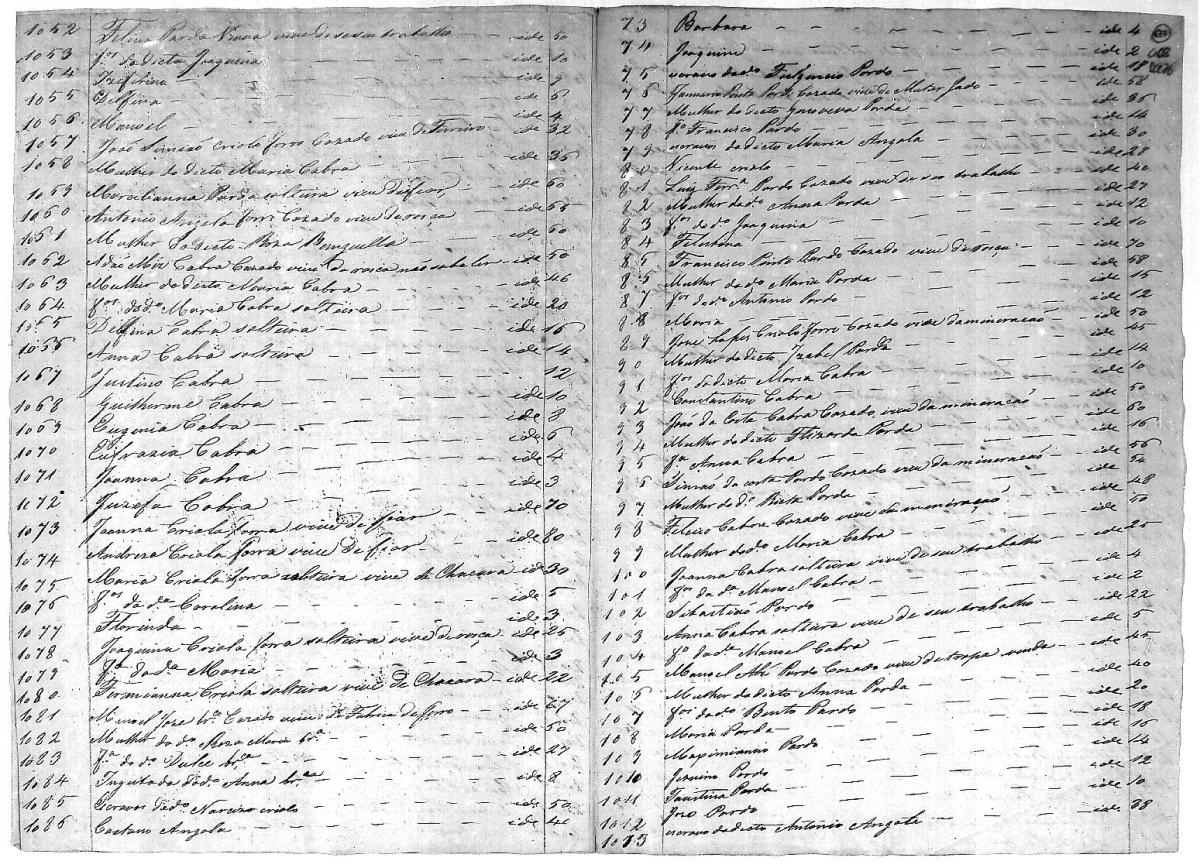 1052 Felicia Parda Viuva vive de seu trabalho — id.e 50
1053 f.os da dicta Joaquina — id.e 10
1054 Zeferina — id.e 9
1055 Delfina — id.e 6
1056 Manoel — id.e 4
1057 José Simião Criolo forro Cazado vive de Ferreiro — id.e 32
1058 Mulher do dicto Maria Cabra — id.e 36
1059 Marcelianna Parda solteira vive de fiar — id.e 50
1060 Antonio Angola forro Cazado vive da rosca — id.e 55
1061 Mulher do dicto Roza Benguella — id.e 60
1062 Adão Cabra Cazado vive da rosca não sabe ler — id.e 50
1063 Mulher do dicto Maria Cabra — id.e 46
1064 f.os do d.o Maria Cabra solteira — id.e 20
1065 Delfina Cabra solteira — id.e 16
1066 Anna Cabra solteira — id.e 14
1067 Justino Cabra — 12
1068 Guilherme Cabra — id.e 10
1069 Eugenia Cabra — id.e 8
1070 Eufrazia Cabra — id.e 6
1071 Joanna Cabra — id.e 4
1072 Juzefa Cabra — id.e 3
1073 Joanna Criola forra vive de fiar — id.e 70
1074 Andreza Criola forra vive de fiar — id.e 80
1075 Maria Criola forra solteira vive de Chacara — id.e 30
1076 f.os da d.a Carolina — id.e 5
1077 Florinda — id.e 3
1078 Joaquina Criola forra solteira vive da rosca — id.e 25
1079 f.a da d.a Maria — id.e 3
1080 Firmianna Criola solteira vive de Chacara — id.e 22
1081 Manoel Joze br.co Cazado vive de Fabrica de ferro — id.e 67
1082 Mulher do d.o Roza Maria br.a — id.e 50
1083 f.a do d.o Dulce br.a — id.e 27
1084 Ingeitada do d.o Anna br.ca — id.e 8
1085 Escravos do d.o Narcizo criolo — id.e 50
1086 Caetano Angola — id.e 40
73 Barbara — id.e 4
74 Joaquim — id.e 2
75 escravo do d.o Fulgencio Pardo — id.e 18
76 Januario Pinto Pardo Cazado vive de — id.e 58
77 Mulher do dicto Genoveva Parda — id.e 36
78 f.o Francisco Pardo — id.e 14
79 escravos do dicto Maria Angola — id.e 30
80 Vicente criolo — id.e 28
81 Luiz Ferr.a Pardo Cazado vive de seu trabalho — id.e 40
82 Mulher do d.o Anna Parda — id.e 27
83 f.os do d.o Joaquina — id.e 12
84 Felisbina — id.e 10
85 Francisco Pinto Pardo Cazado vive da rosca — id.e 70
86 Mulher do d.o Maria Parda — id.e 58
87 f.os do d.o Antonio Pardo — id.e 15
88 Maria — id.e 12
89 Joze Lopes Criolo forro Cazado vive da mineração — id.e 50
90 Mulher do dicto Izabel Parda — id.e 45
91 f.os do dicto Maria Cabra — id.e 14
Constantino Cabra — id.e 10
92 João da Costa Cabra Cazado vive da mineração — id.e 50
93 Mulher do dicto Parda — id.e 60
94 f.a Anna Cabra — id.e 16
95 Simão da Costa Pardo Cazado vive da mineração — id.e 56
96 Mulher do d.o Rita Parda — id.e 54
97 Felicio Cabra Cazado vive da mineração — id.e 48
98 Mulher do d.o Maria Cabra — id.e 50
99 Joanna Cabra solteira vive de seu trabalho — id.e 25
100 f.os da d.a Manoel Cabra — id.e 4
101 Sibastião Pardo — id.e 2
102 Anna Cabra solteira vive de seu trabalho — id.e 22
103 f.o da d.a Manoel Cabra — id.e 5
104 Manoel Pardo Cazado vive de — id.e 45
105 Mulher do dicto Anna Parda — id.e 40
106 f.os do d.o Bento Pardo — id.e 20
107 Maria Parda — id.e 18
108 Maximianno Pardo — id.e 16
109 Jesuino Pardo — id.e 14
1010 Faustina Parda — id.e 12
1011 Joze Pardo — id.e 10
1012 escravo do dicto Antonio Angola — id.e 68
1013